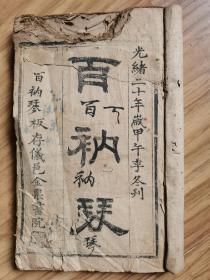 光緒二十年歲甲午季冬刋
百衲琴
百衲琴
百衲琴板存儀邑金書院